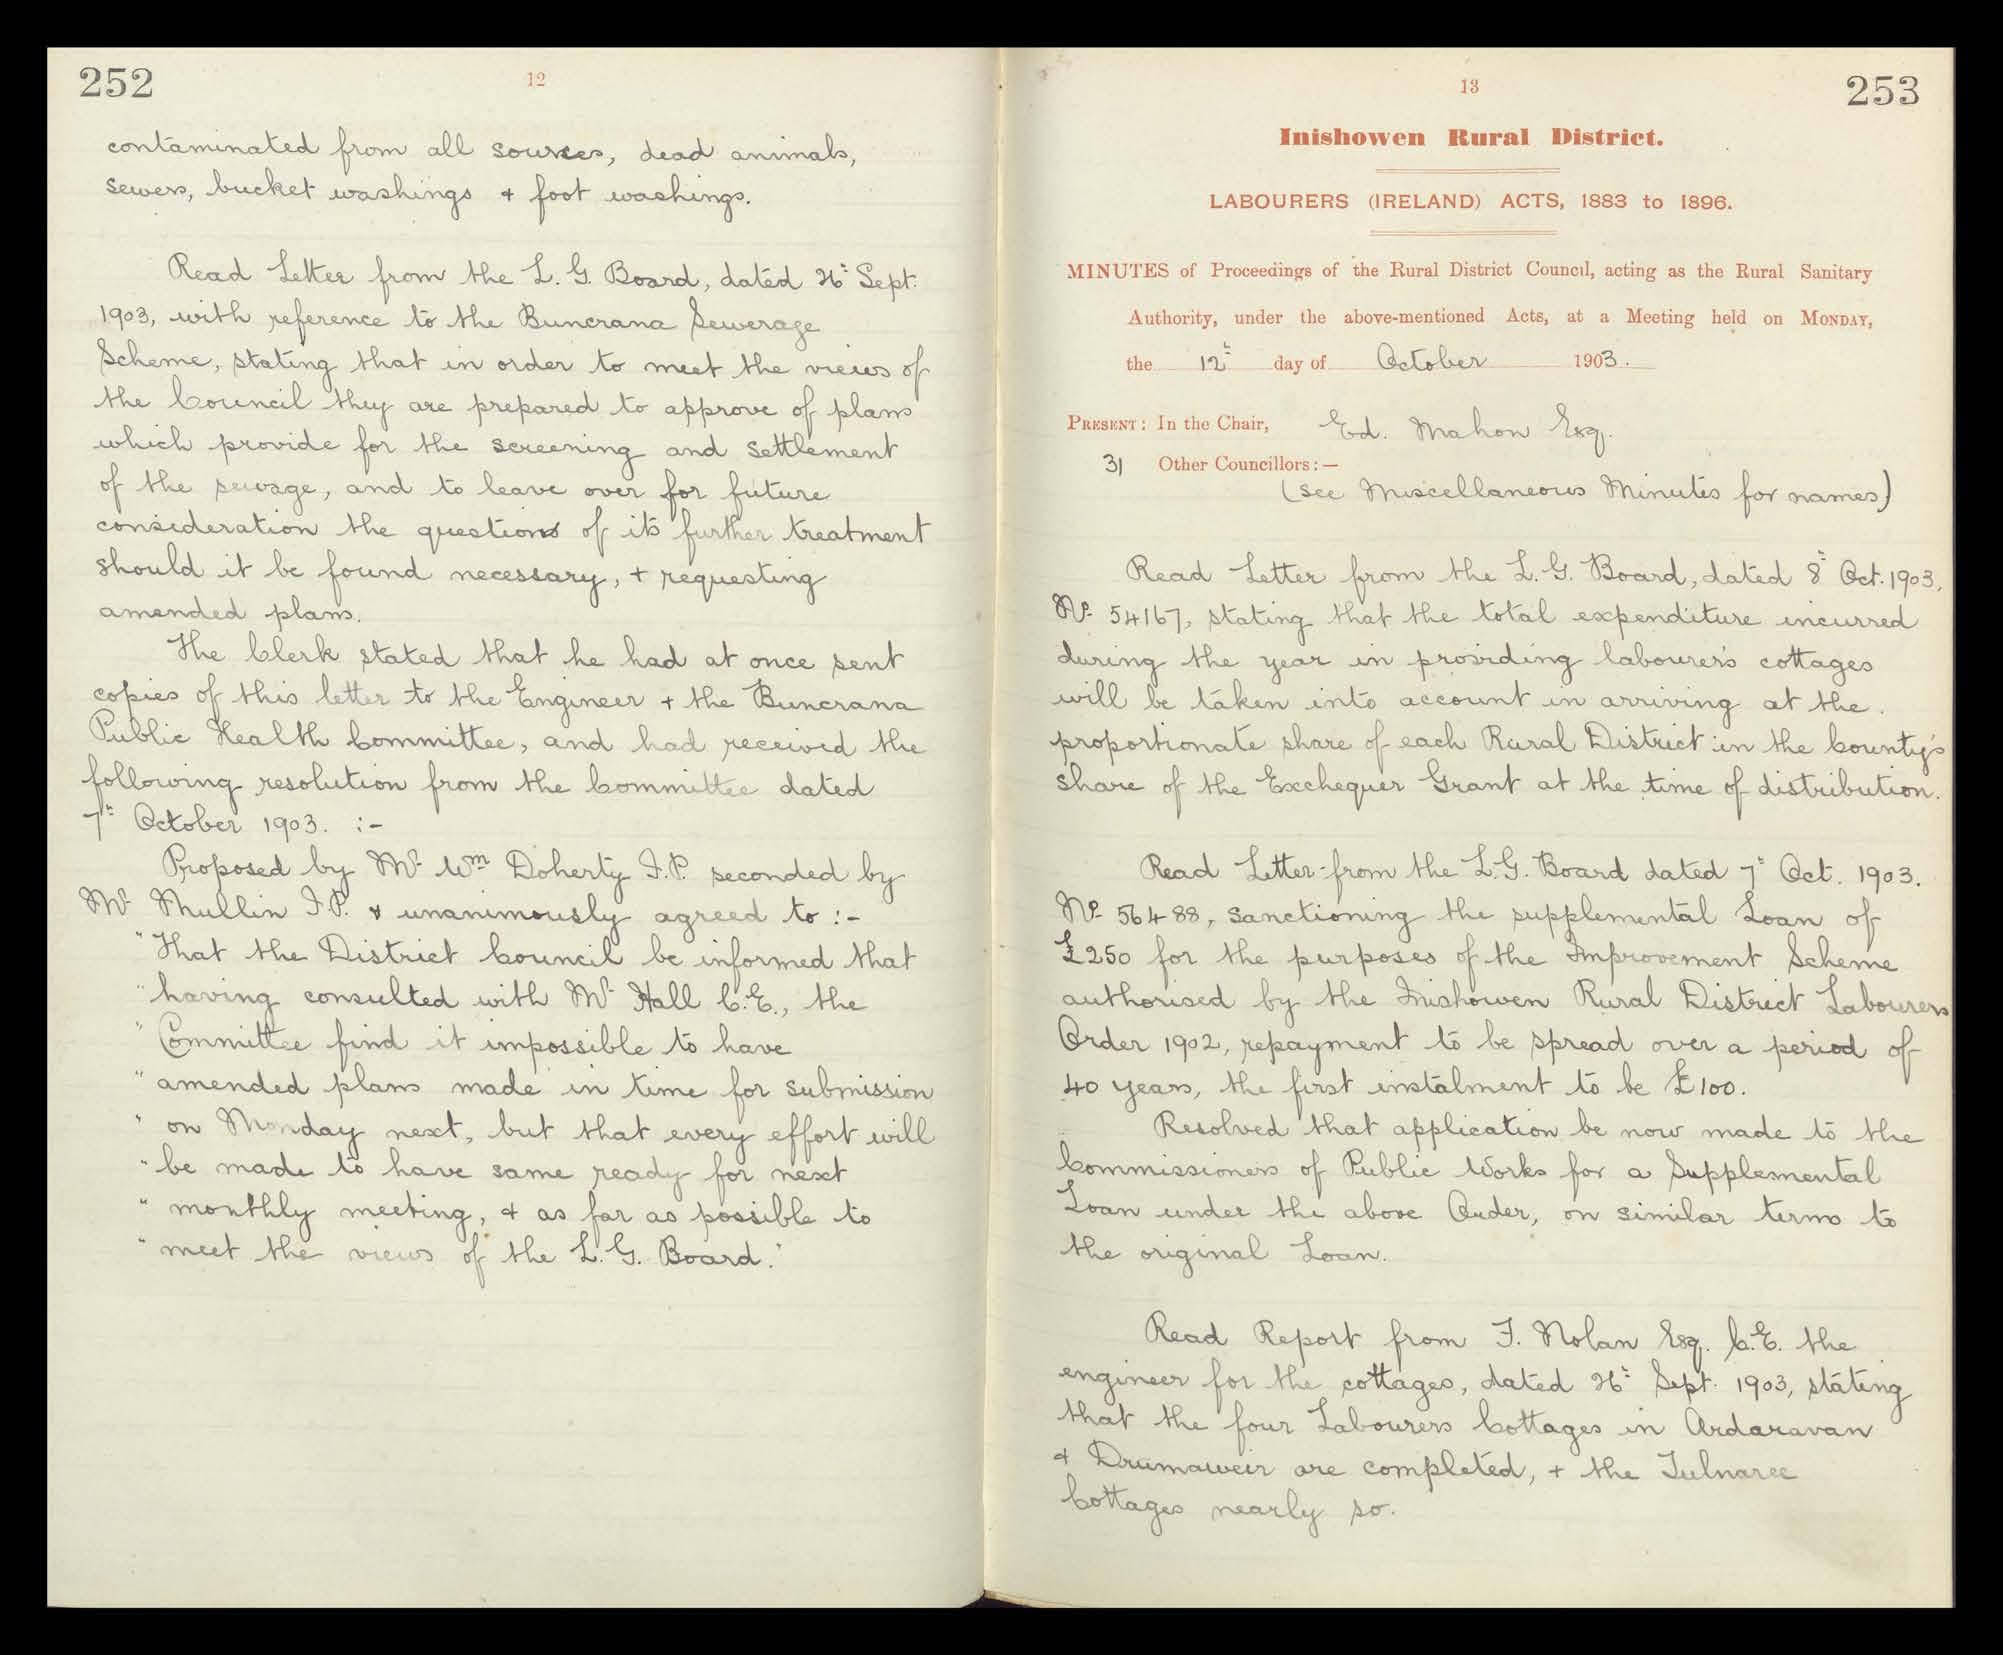 252
12
contaminated from all sources, dead animals,
sewers, bucket washings & foot washings.
Read Letter from the L. G. Board, dated 26th Sept.
1903, with reference to the Buncrana Sewerage
Scheme, stating that in order to meet the views of
the Council they are prepared to approve of plans
which provide for the screening and settlement
of the sewage, and to leave over for future
consideration the question of its further treatment
should it be found necessary, + requesting
amended plans.
The Clerk stated that he had at once sent
copies of this letter to the Engineer + the Buncrana
Public Health Committee, and had received the
following resolution from the Committee dated
7th October 1903. :-
Proposed by Mr Wm Doherty J.P. seconded by
Mr Mullin J.P. & unanimously agreed to :-
"That the District Council be informed that
"having consulted with Mr Hall C.E., the
"Committee find it impossible to have
"amended plans made in time for submission
"on Monday next, but that every effort will
"be made to have same ready for next
"monthly meeting, & as far as possible to
"meet the views of the L. G. Board."
13
253
Inishowen Rural District.
LABOURERS (IRELAND) ACTS, 1883 to 1896.
MINUTES of Proceedings of the Rural District Council, acting as the Rural Sanitary
Authority, under the above-mentioned Acts, at a Meeting held on MONDAY,
the 12th day of October 1903.
PRESENT: In the Chair, Ed. Mahon Esq.
31 Other Councillors:—
(see Miscellaneous Minutes for names)
Read Letter from the L. G. Board, dated 8th Oct. 1903,
No 54167, stating that the total expenditure incurred
during the year in providing labourer's cottages
will be taken into account in arriving at the
proportionate share of each Rural District in the County's
share of the Exchequer Grant at the time of distribution.
Read Letter from the L. G. Board dated 7th Oct. 1903.
No 56488, sanctioning the supplemental Loan of
£250 for the purposes of the Improvement Scheme
authorised by the Inishowen Rural District Labourers
Order 1902, repayment to be spread over a period of
40 years, the first instalment to be £100.
Resolved that application be now made to the
Commissioners of Public Works for a Supplemental
Loan under the above Order, on similar terms to
the original Loan.
Read Report from J. Nolan Esq. C.E. the
engineer for the cottages, dated 26th Sept. 1903, stating
that the four Labourers Cottages in Ardaravan
& Drumaweir are completed, + the Tulnaree
Cottages nearly so.